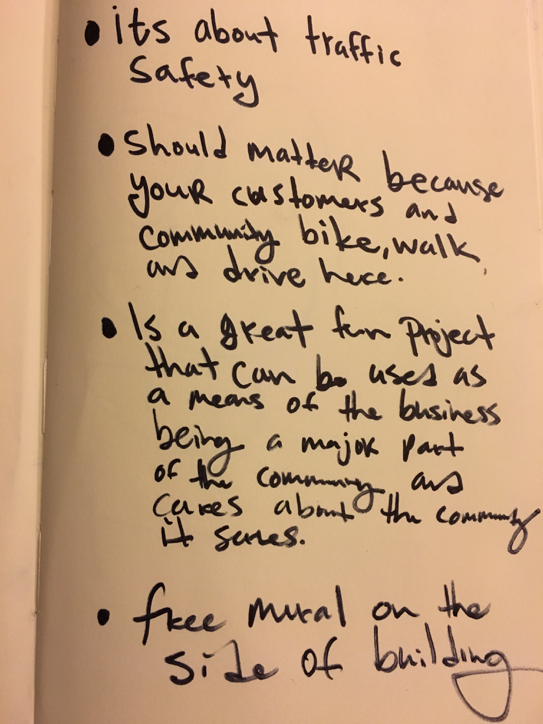 • its about traffic
safety
• Should matter because
your customers and
community bike, walk
and drive here.
• Is a great fun project
that can be used as
a means of the business
being a major part
of the community and
cares about the community
it serves.
• free mural on the
side of building